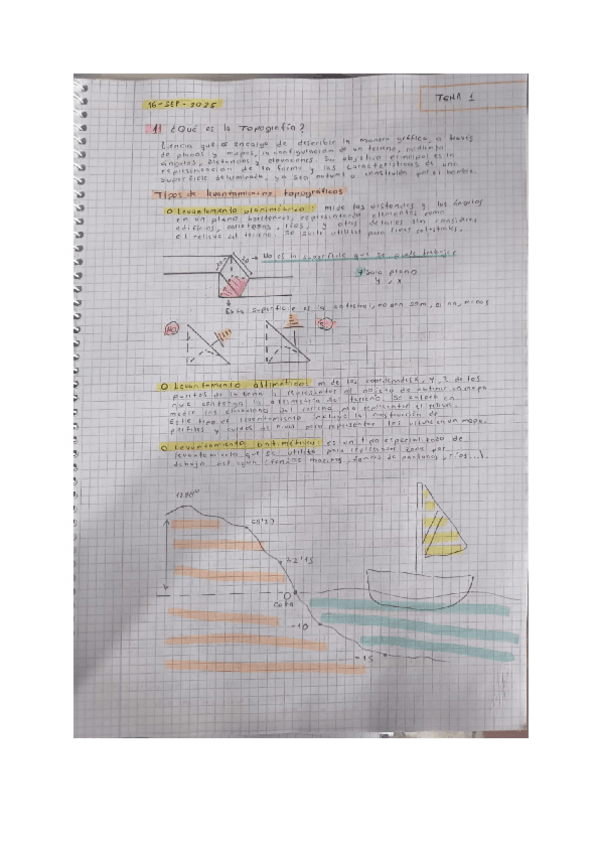 16-SEP-2025
TEMA 1
1) ¿Qué es la Topografía?
Ciencia que se encarga de describir la manera gráfica, a través
de planos y mapas, la configuración de un terreno, mediante
ángulos, distancias y elevaciones. Su objetivo principal es la
representación de la forma y las características de una
superficie determinada, ya sea natural o construida por el hombre.
Tipos de levantamientos topográficos
Levantamiento planimétrico: mide las distancias y los ángulos
en un plano horizontal, representando elementos como
edificios, carreteras, ríos, y otros detalles sin considerar
el relieve del terreno. Se suele utilizar para fines catastrales.
→ No es la superficie que se puede trabajar
Solo plano
y, x
Esta superficie es la catastral, no son 20m,
Levantamiento altimétrico: mide las coordenadas x, y, z de los
puntos de la zona a representar
que contenga la altimetría del terreno. Se enfoca en
medir las elevaciones del terreno para representar el relieve.
Este tipo de levantamiento incluye la construcción de
perfiles y curvas de nivel para representar
Levantamiento batimétrico: es un tipo especializado de
levantamiento que se utiliza para representar zonas por
debajo del agua (fondos marinos, fondos de pantanos, ríos...).
22'15
0
cota
-10
-15